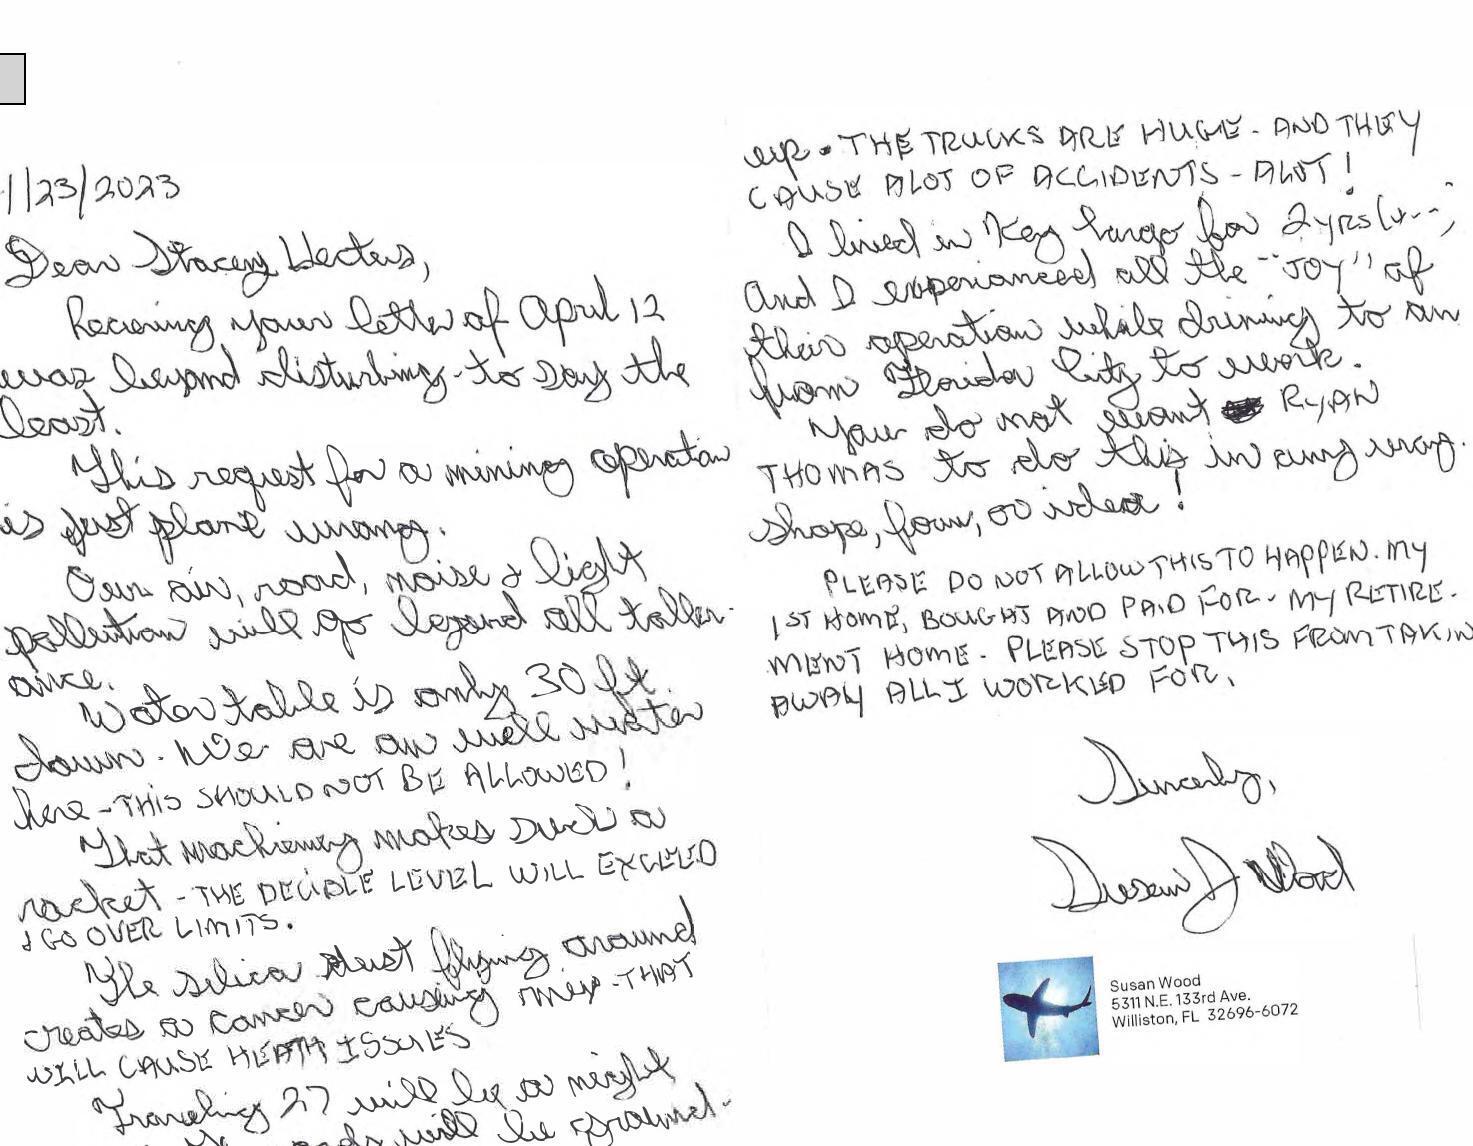 1/23/2023
Dear Stacey Hectus,
Recieving your letter of April 12
was beyond disturbing-to say the
least.
This request for a mining operation
is just plane wrong.
Our air, road, noise & light
pollution will go beyond all toller-
ance.
Water table is only 30 ft.
down. We are on well water
here - THIS SHOULD NOT BE ALLOWED!
That machienery makes such a
racket - THE DECIBLE LEVEL WILL EXCEED
& GO OVER LIMITS.
The silica dust flying around
creates a cancer causing mix - THAT
WILL CAUSE HEATH ISSUES
Traveling 27 will be a night
roads will be ground-
up. THE TRUCKS ARE HUGE - AND THEY
CAUSE ALOT OF ACCIDENTS - ALOT!
I lived in Key Largo for 2 yrs
and I experianced all the "JOY" of
their operation while driving to an
from Florida City to work.
You do not want RYAN
THOMAS to do this in any way.
shape, form, or idea!
PLEASE DO NOT ALLOW THIS TO HAPPEN. MY
1ST HOME, BOUGHT AND PAID FOR - MY RETIRE-
MENT HOME - PLEASE STOP THIS FROM TAKIN
AWAY ALL I WORKED FOR.
Sincerly,
Susan J Wood
Susan Wood
5311 N.E. 133rd Ave.
Williston, FL 32696-6072